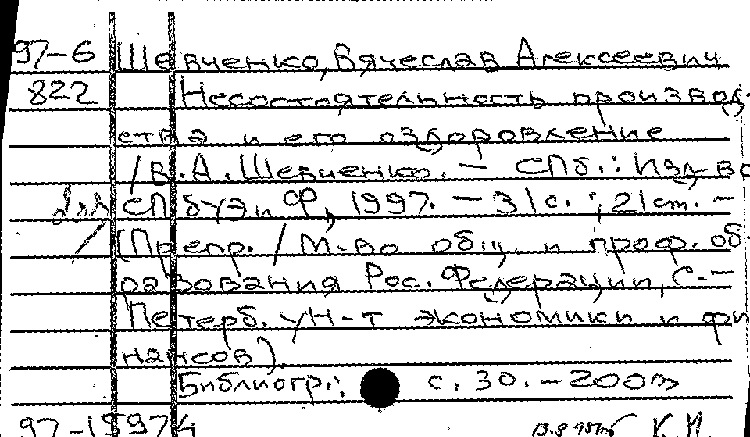 97-6 Шевченко, Вячеслав Алексеевич
822 Несостоятельность производ-
ства и его оздоровление
/В.А. Шевченко. — СПб.: Изд-во
СПбУЭиФ, 1997. — 31с.; 21см. —
(Препр. / М-во общ. и проф. об-
разования Рос. Федерации, С.-
Петерб. ун-т экономики и фи
нансов).
Библиогр.: с. 30. — 200
97-15974 К.И.